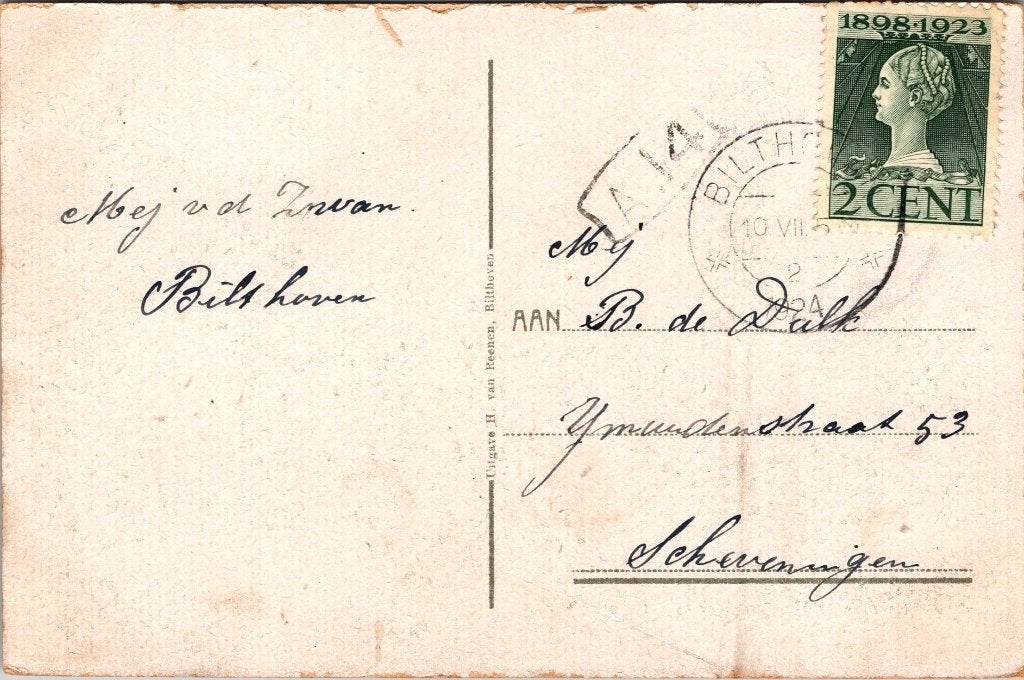 Mej v d Zwan.
Bilthoven
Uitgave H. van Reenen, Bilthoven
1898·1923
2 CENT
A.14
BILTHO
10 VII.
2
1924
Mej
AAN B. de Dulk
Ymuidenstraat 53
Scheveningen